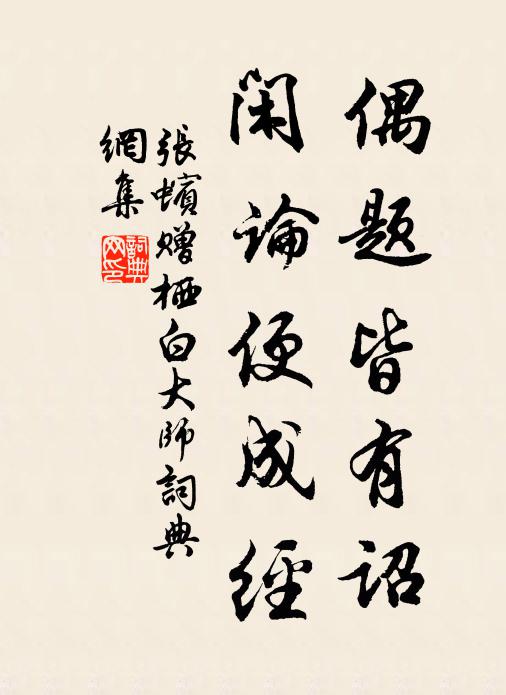 偶题皆有詔
闲論便成經
張蠙贈栖白大師詞典
網集
詞典网印